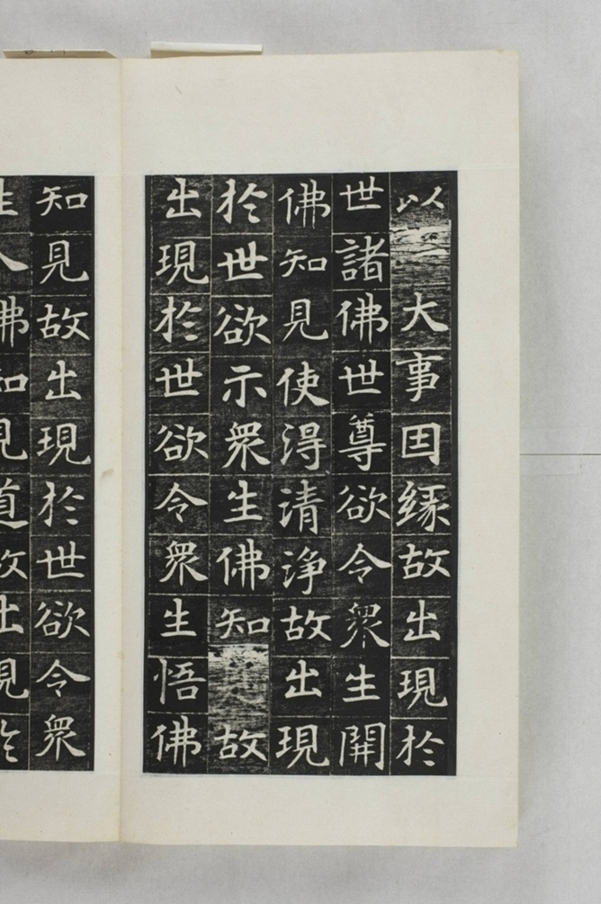 以一大事因緣故出現於
世諸佛世尊欲令衆生開
佛知見使得清淨故出現
於世欲示衆生佛知故
出現於世欲令衆生悟佛
知見故出現於世欲令衆
生入佛知見道故出現於